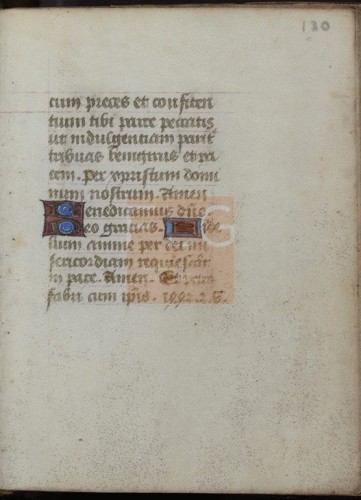 120
cum preces et confiten
tium tibi parce peccatis
ut indulgentiam parit
tribuas benignus et pa
cem. Per xpristum domi
num nostrum. Amen
Benedicamus dño
Deo gracias. Fide
lium anime per dei mi
sericordiam requiescāt
in pace. Amen.
fabri cum ipis. 1992.2.